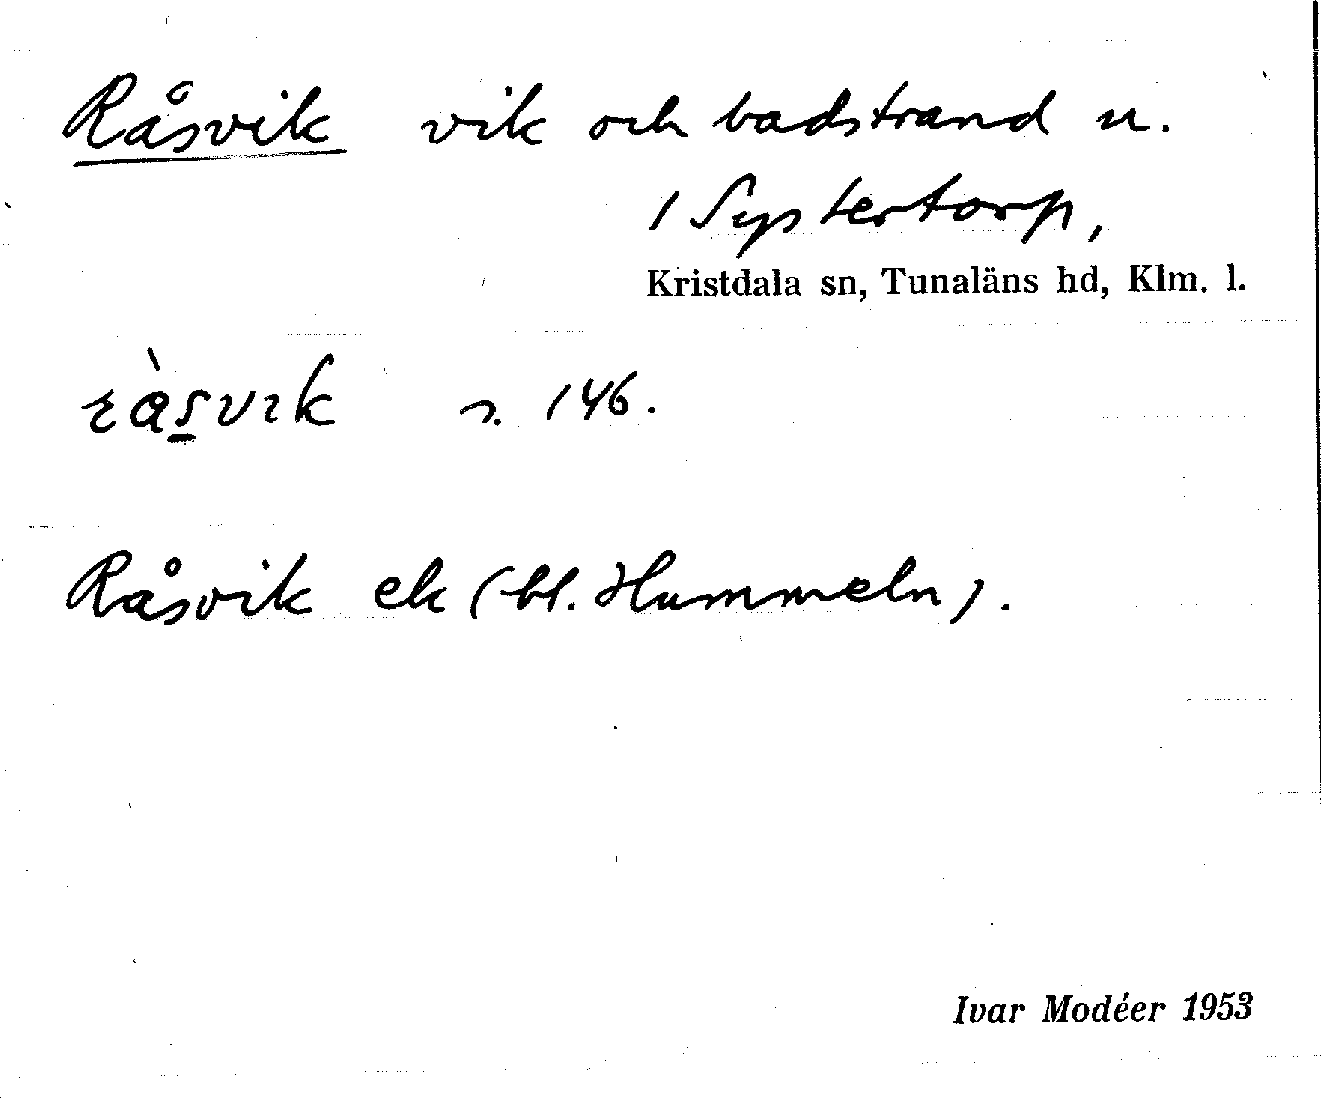 Råsvik vik och badstrand u.
1 Systertorp,
Kristdala sn, Tunaläns hd, Klm. l.
s. 146.
Råsvik ek (bl. Hummeln).
Ivar Modéer 1953